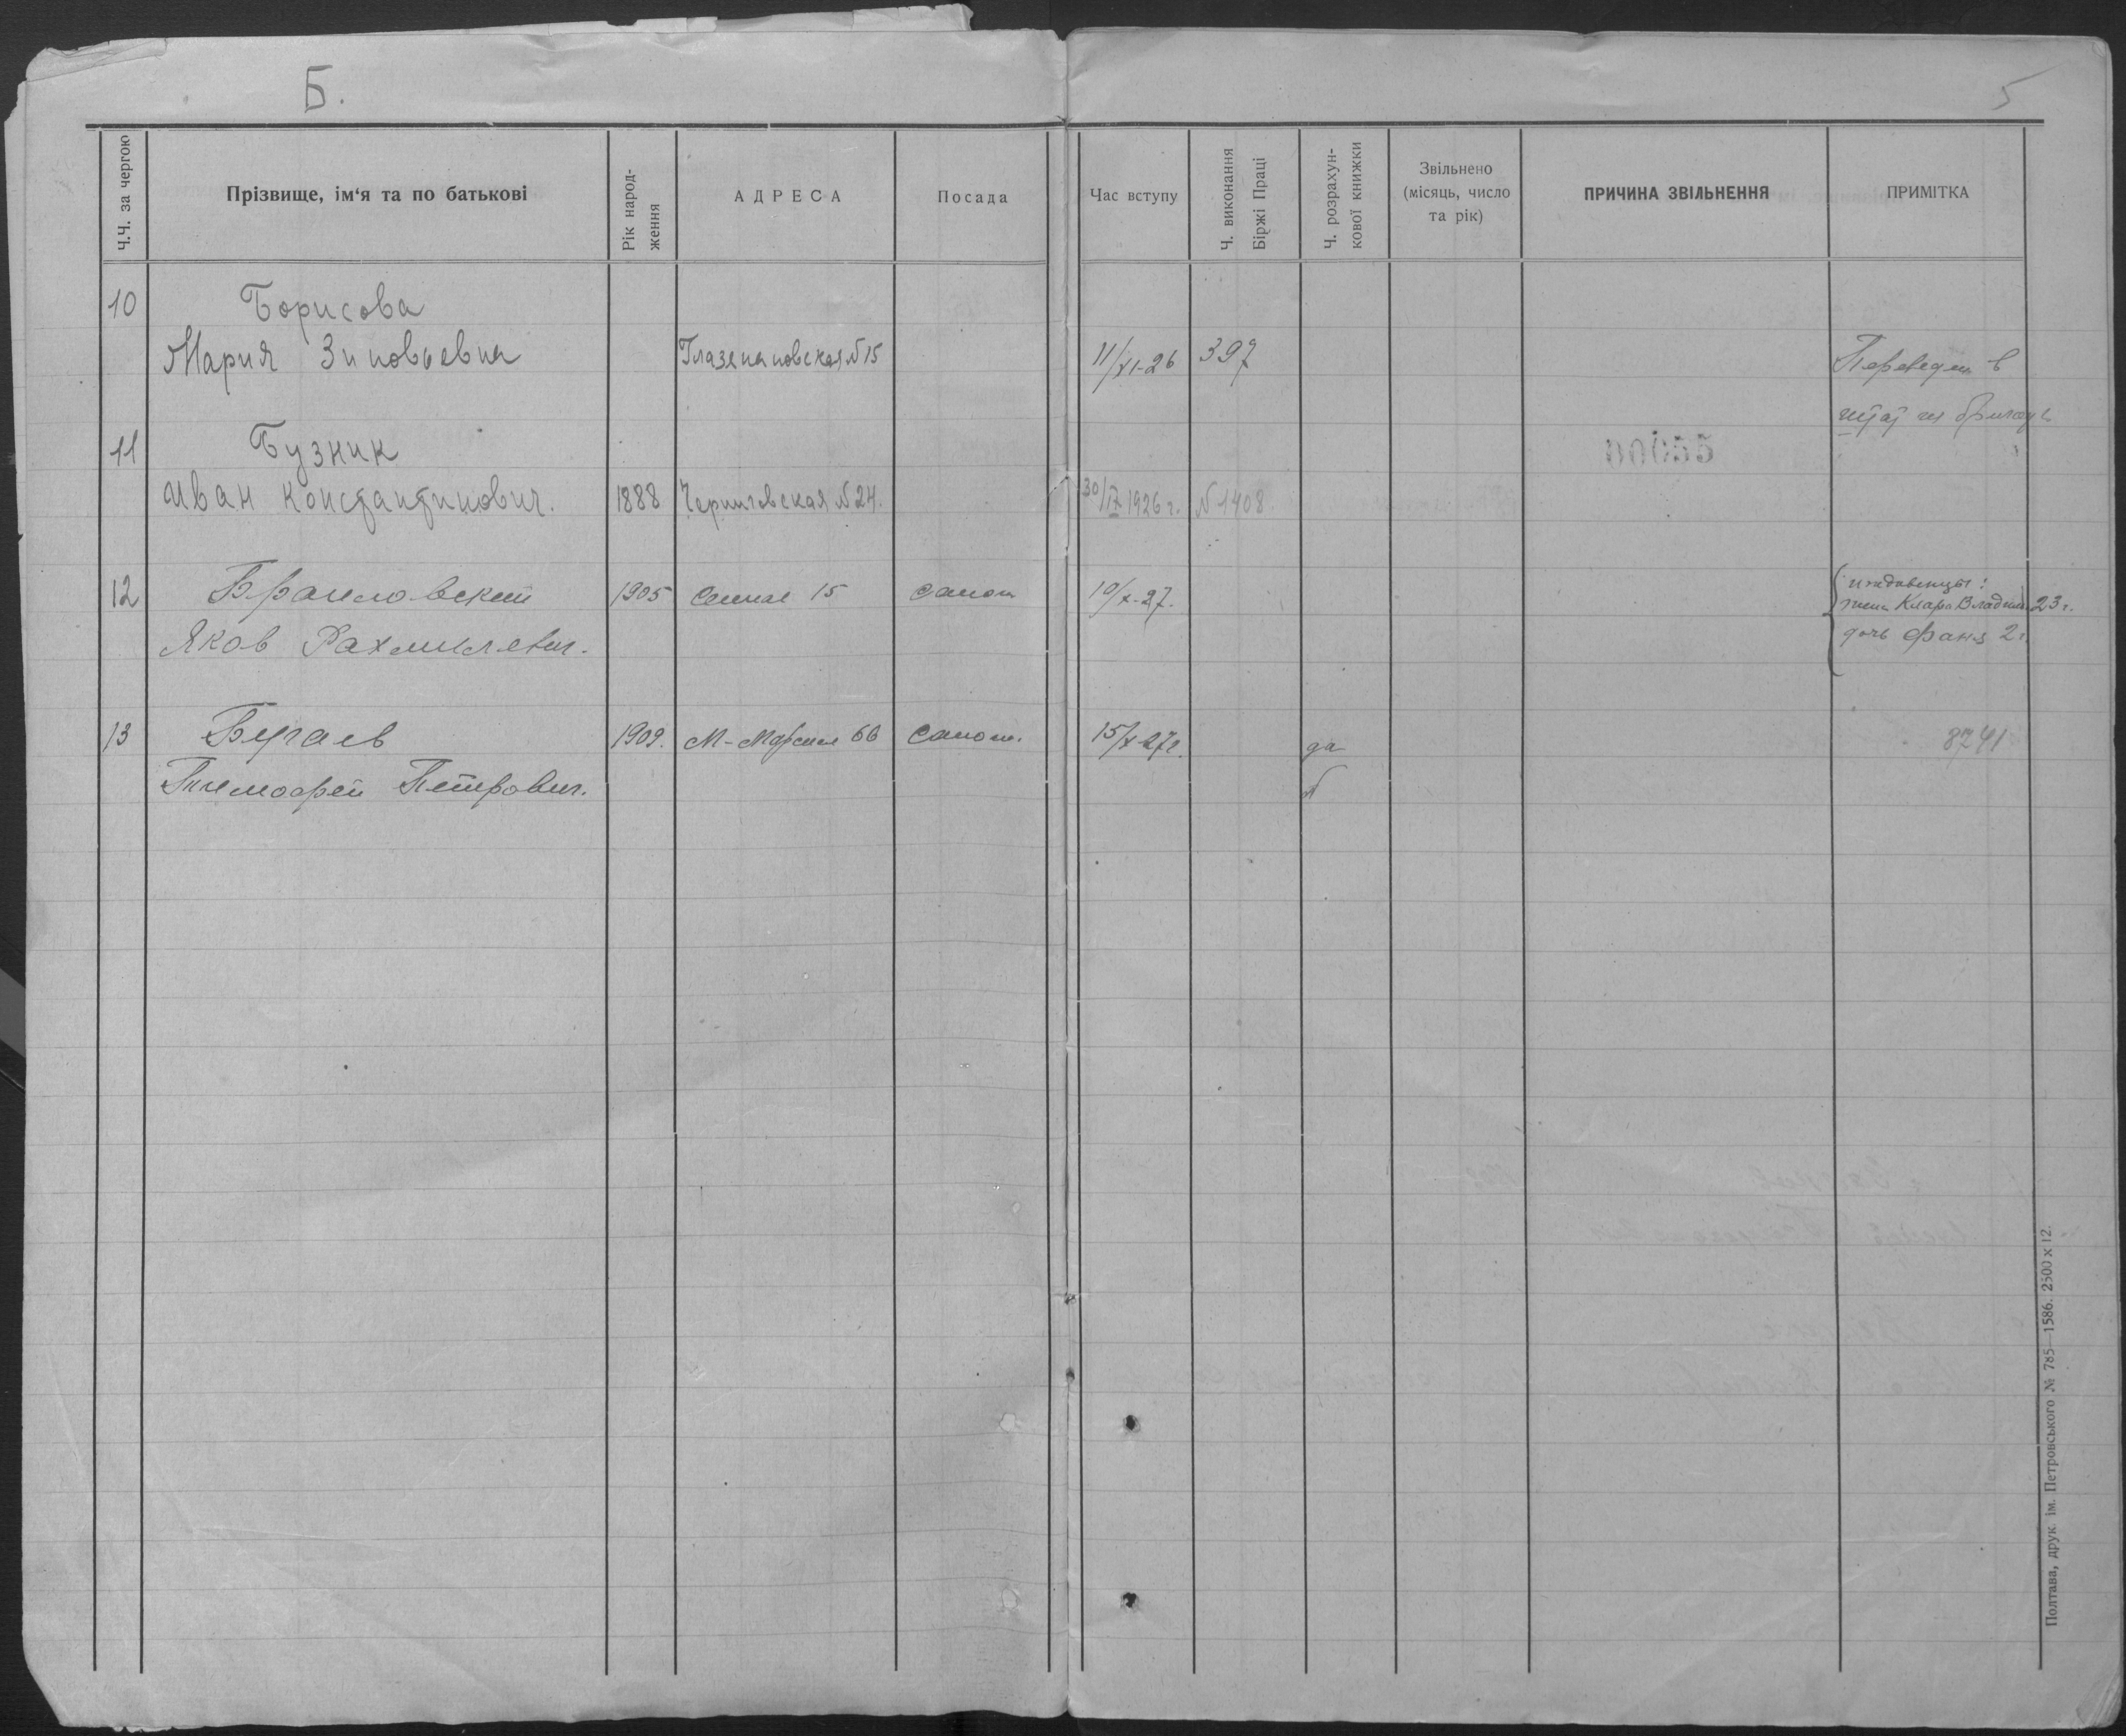 Б.
5
Ч.Ч. за чергою
Прізвище, ім‘я та по батькові
Рік народ-
ження
АДРЕСА
Посада
Час вступу
Ч. виконання
Біржі Праці
Ч. розрахун-
кової книжки
Звільнено
(місяць, число
та рік)
ПРИЧИНА ЗВІЛЬНЕННЯ
ПРИМІТКА
10 Борисова
Мария Зиновьевна Глазенаповская №15 11/XI-26 397 Переведен в
штат
11 Бузник
Иван Константинович. 1888 Черниговская №24. 30/IX 1926 г. №1408.
12 Браиловский 1905 Сенная 15 сапож 10/X-27. иждивенцы:
жена Клара Владим. 23 г.
Яков Рахмилевич. дочь Фаня 2 г.
13 Бугаев 1909. 66 Сапож. 15/X-27г. да 8741
Тимофей Петрович.
Полтава, друк. ім. Петровського № 785—1586. 2500 x 12.